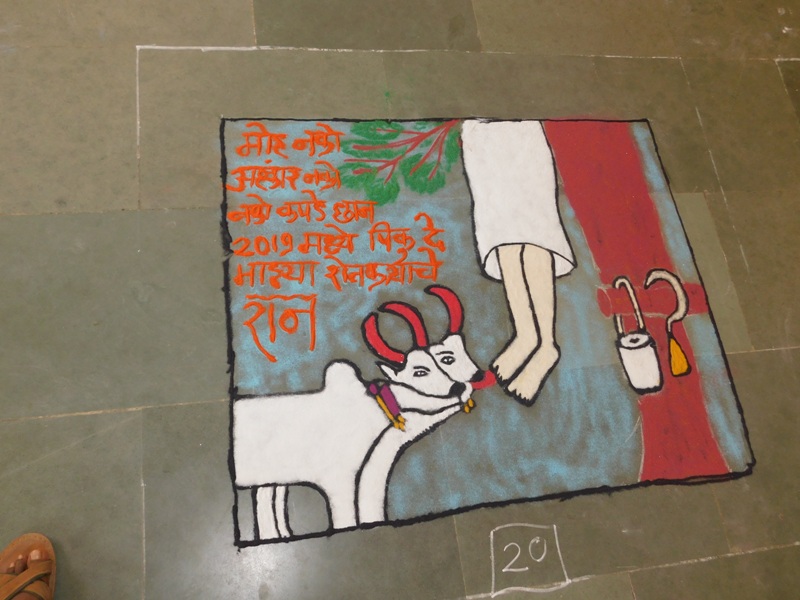 मोह नको
अहंकार नको
नको कपडे छान
2019 मध्ये पिकु दे
माझ्या शेतकऱ्याचे
रान
20